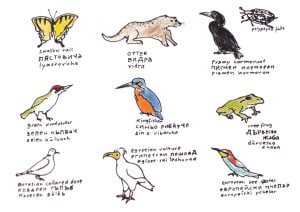 swallow tail
ЛЯСТОВИЧА
lyastovicha
otter
ВИДРА
vidra
Pygmy cormorant
ПИГМЕН КОРМОРАН
pigmen kormoran
green woodpecker
ЗЕЛЕН КЪЛВАЧ
zelen kŭlvach
Kingfisher
СИНЬО РИБАРЧЕ
tree frog
ДЪРВЕСНА
ЖАБА
dŭrvesna
Eurasian collared dove
ГЪЛЪБ
Egyptian vulture
ЕГИПЕТСКИ ЛЕШОЯД
egipet-ski leshoyad
european bee-eater
ЕВРОПЕЙСКИ ПЧЕЛАР
evropeĭski pchelar